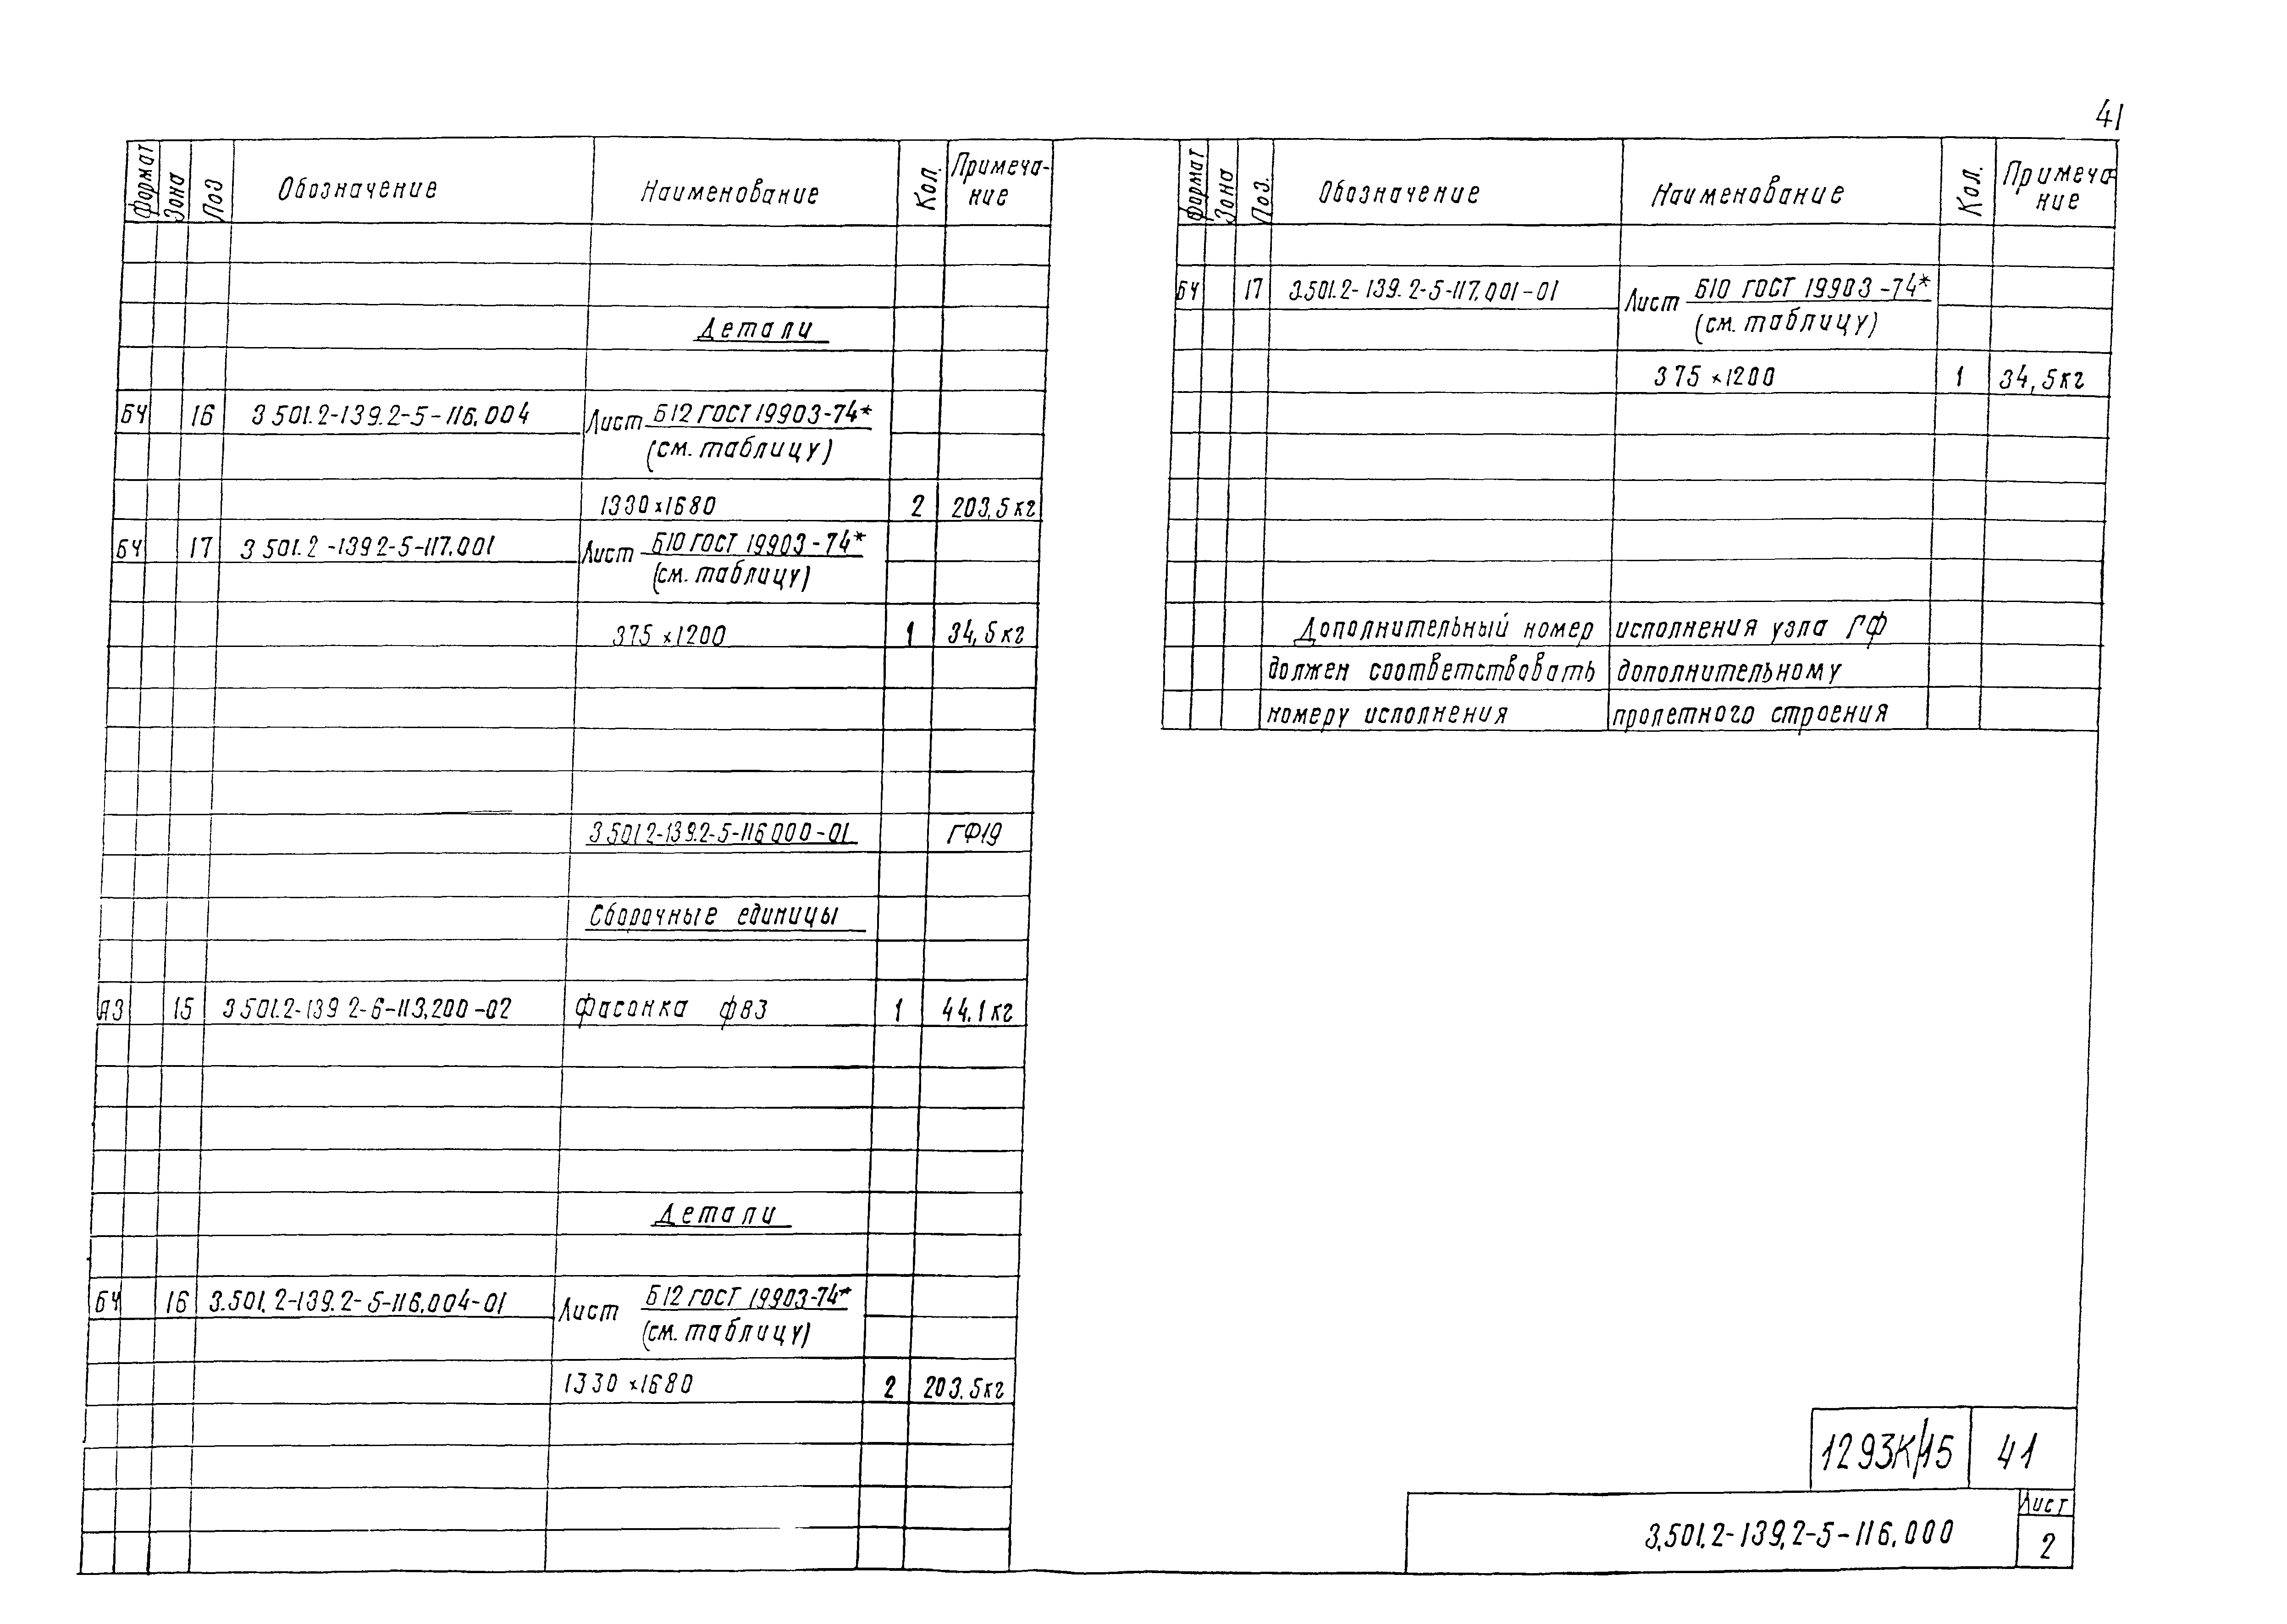 41
Формат Зона Поз Обозначение Наименование Кол. Примеча-
ние
Детали
БЧ 16 3 501.2-139.2-5-116.004 Лист Б12 ГОСТ 19903-74*
(см. таблицу)
1330×1680 2 203,5 кг
БЧ 17 3 501.2-139 2-5-117.001 Лист Б10 ГОСТ 19903-74*
(см. таблицу)
375×1200 1 34,5 кг
3 501 2-139.2-5-116 000-01 ГФ19
Сборочные единицы
А3 15 3 501.2-139 2-6-113.200-02 Фасонка ФВ3 1 44.1 кг
Детали
БЧ 16 3.501.2-139.2-5-116.004-01 Лист Б12 ГОСТ 19903-74*
(см. таблицу)
1330×1680 2 203.5 кг
Формат Зона Поз. Обозначение Наименование Кол. Примеча-
ние
БЧ 17 3.501.2-139.2-5-117.001-01 Лист Б10 ГОСТ 19903-74*
(см. таблицу)
375×1200 1 34,5 кг
Дополнительный номер исполнения узла ГФ
должен соответствовать дополнительному
номеру исполнения пролетного строения
1293К/15 41
3.501.2-139.2-5-116.000 Лист
2